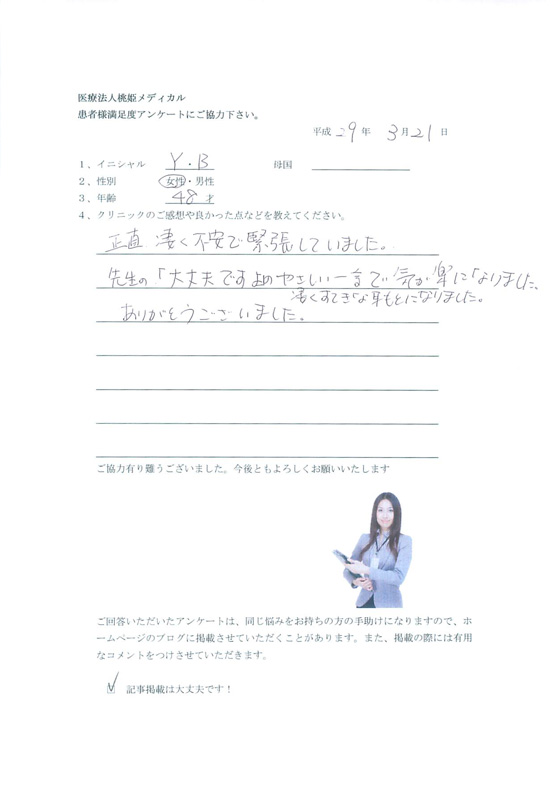 医療法人桃姫メディカル
患者様満足度アンケートにご協力下さい。
平成 29 年 3 月 21 日
1、イニシャル Y.B 母国
2、性別 女性・男性
3、年齢 48才
4、クリニックのご感想や良かった点などを教えてください。
正直 凄く不安で緊張していました。
先生の「大丈夫ですよ」のやさしい一言で気が楽になりました、
凄くすてきな耳もとになりました。
ありがとうございました。
ご協力有り難うございました。今後ともよろしくお願いいたします
ご回答いただいたアンケートは、同じ悩みをお持ちの方の手助けになりますので、ホ
ームページのブログに掲載させていただくことがあります。また、掲載の際には有用
なコメントをつけさせていただきます。
記事掲載は大丈夫です！